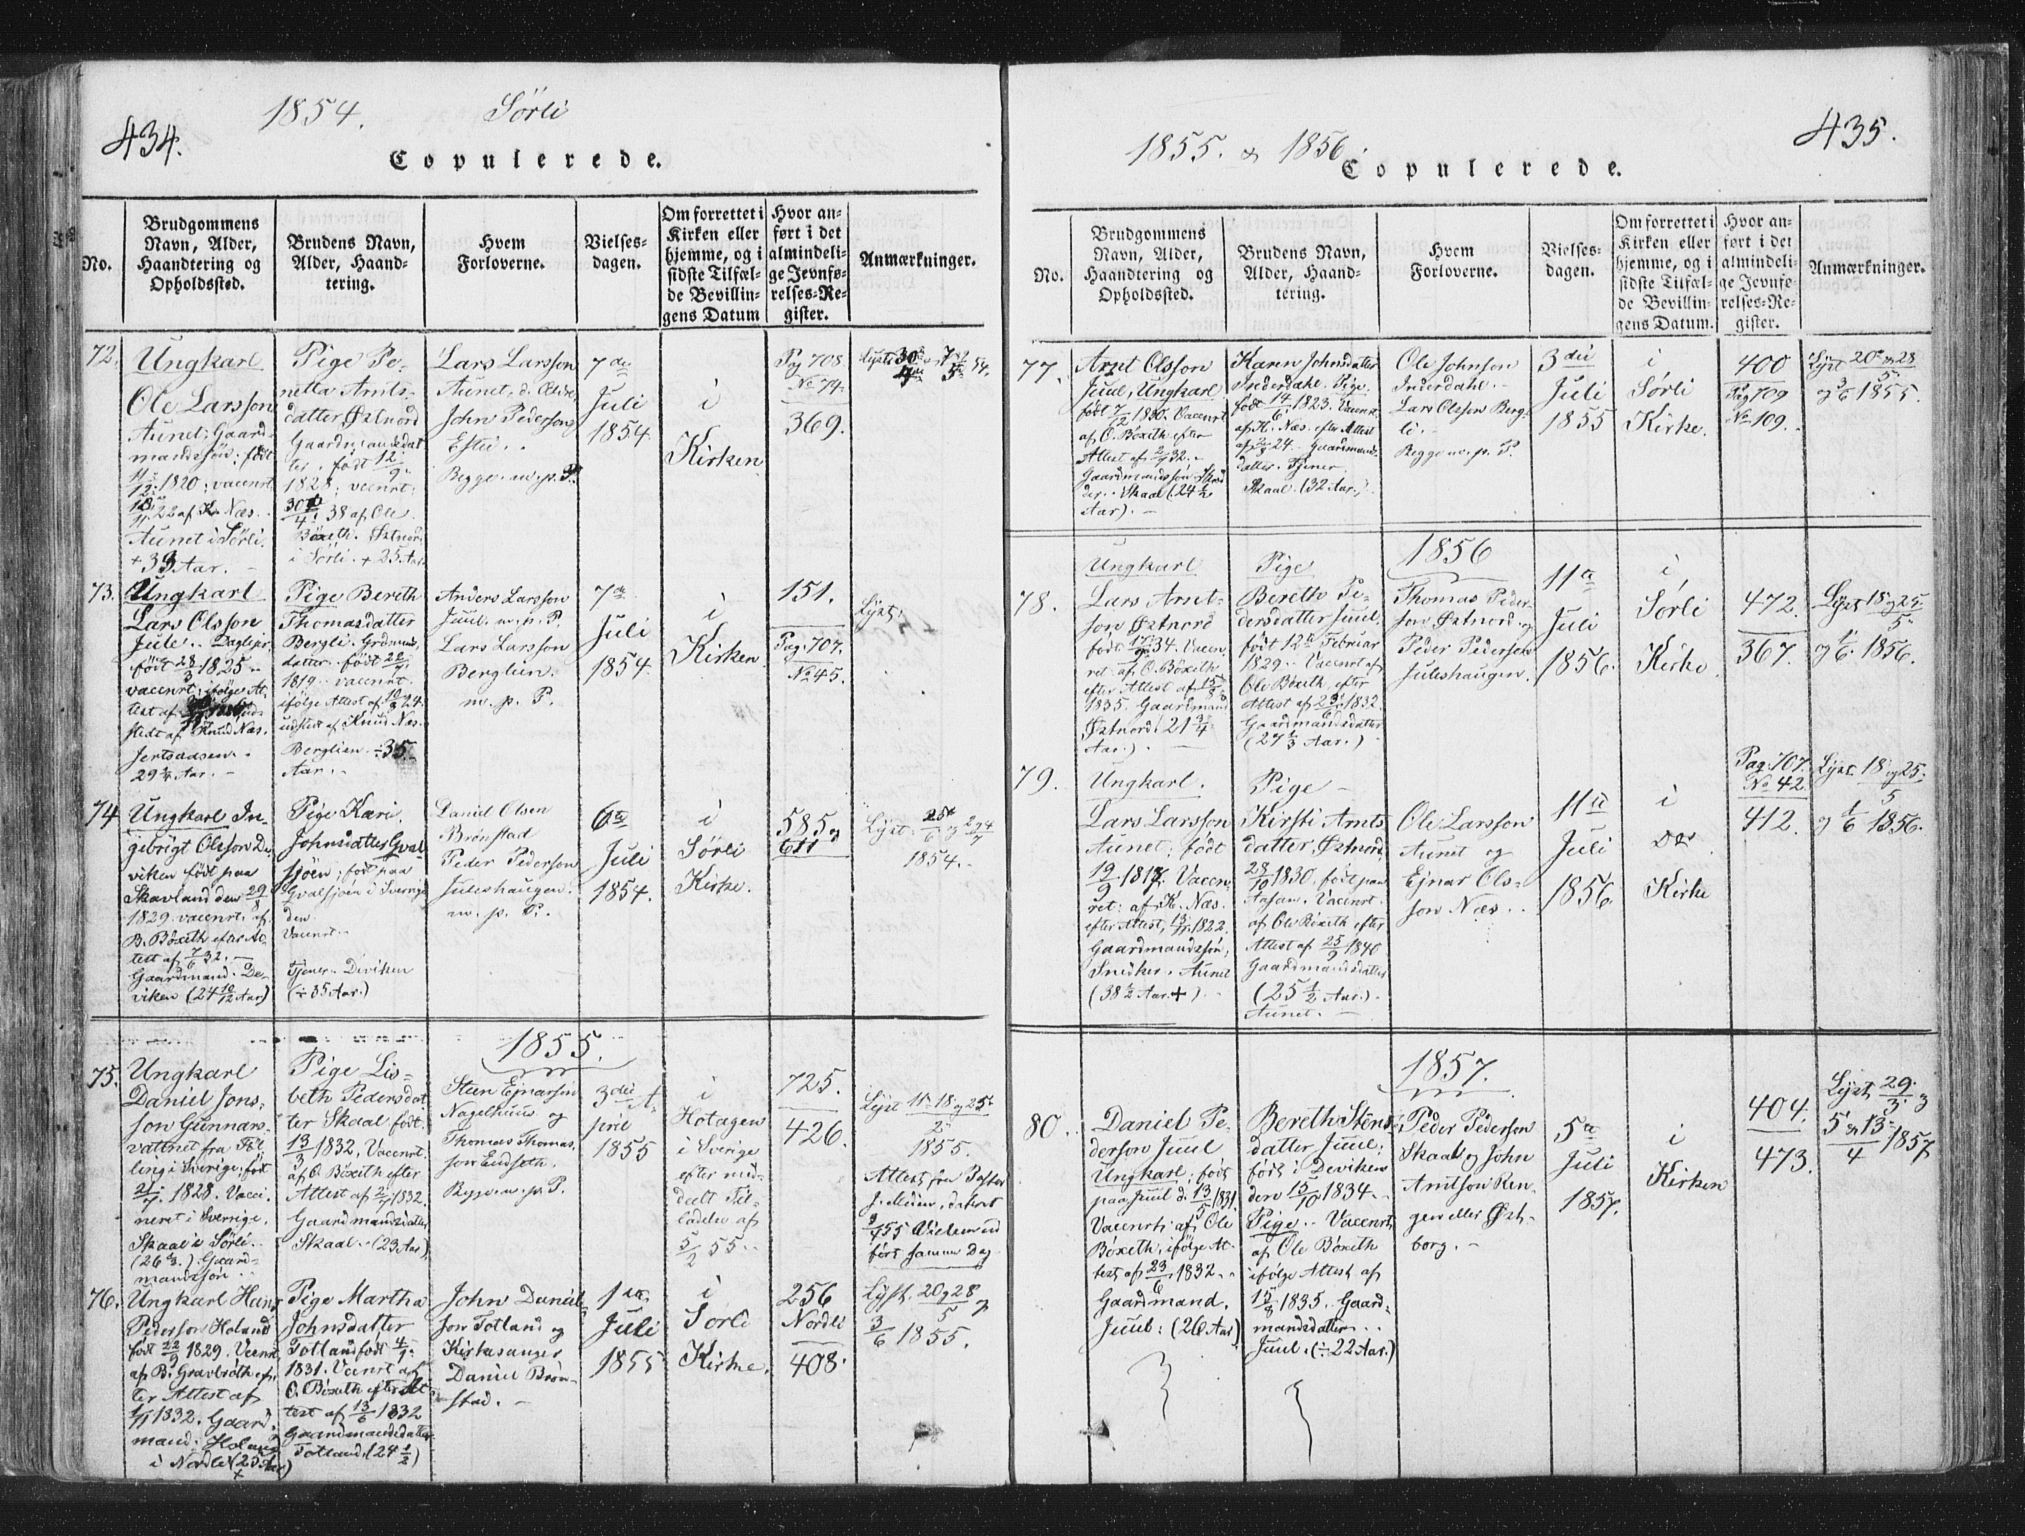 434.
1854.
Sörli
Copulerede.
No.
Brudgommens
Navn, Alder,
Haandtering og
Opholdssted.
Brudens Navn,
Alder, Haand-
tering.
Hvem
Forloverne.
Vielses-
dagen.
Om forrettet i
Kirken eller
hjemme, og i
sidste Tilfæl-
de Bevillin-
gens Datum
Hvor an-
ført i det
almindeli-
ge Jevnfø-
relses-Re-
gister.
Anmærkninger.
72.
Ungkarl
Ole Larsson
Aunet; Gaard-
mandssön; født
1820; vaccinrt
22 af K. Næs.
Aunet i Sörli.
+ 33 Aar. -
Pige Pe-
nella Arnts-
datter Østnord
Gaardmandsdat
ter. født 12/9
1828; vccnrt:
30/4 38 af Ole
Böxeth. Østnord
i Sörli. + 25 Aar
Lars Larsson
Aunet,
John Pederson
Estil.
Begge. m. p. P.
7de
Juli
1854.
i
Kirken
Pag 708
No 74.
369.
73.
Ungkarl
Lars Olsson
Jule.
født 28/3 1825
vaccnrt. ifölge At-
test af
stedt af Knud Næs.
29 1/4 Aar. -
Pige Bereth
Thomasdatter
Bergli. Grdmns
datter. født
1819. vaccnrt.
ifölge Attest af 10/3 24.
udstedt af Knud Næs.
Berglien. ÷ 35
Aar. -
Anders Larsson
Juul. m. p. P.
Lars Larsson
Berglien.
m. p. P.
7de
Juli
1854.
i
Kirken
151.
Pag. 707.
No 45.
Lyst.
74
Ungkarl In-
gebrigt Olsson De-
viken født paa
Skavland den 29/8
1829. vaccnrt. af
B. Böxeth efter At-
test af 7/6 32. -
Gaardmand. De-
viken (24 10/12 Aar)
Pige Kari
Johnsdatter Gval-
sjöen; født paa
Gvalsjöen i Sverige
den
Vaccnrt.
Tjener. Deviken
(÷ 35 Aar.)
Daniel Olsen
Brönstad
Peder Pederson
Juleshaugen.
m. p. P.
6te
Juli
1854.
i
Sörli
Kirke.
585 og
611
Lyst. 25/6 og 2 9/7
1854. -
1855.
75.
Ungkarl
Daniel Jons-
son Gunnars-
vattnet fra Föl-
ling i Sverige, født
21/7 1828. Vacci-
neret i Sverige.
Skaal i Sörli.
(26 3/4) Gaard-
mandssön
Pige Lis-
beth Pedersdat
ter Skaal født
13/3 1832. Vaccnrt.
af O. Böxeth efter
Attest af 2/7 1832.
Gaardmandsdatter
Skaal. (23 Aar)
Steen Ejnarson
Nagelhuus og
Thomas Thomas-
son Eudseth.
Begge m. p. P.
3die A-
pril
1855
i
Hotagen
i Sverige
efter med-
delt Til-
ladelse af
5/2 55.
725.
426.
Lyst 11 18 og 25
2
1855.
Attest fra Pastor
J. Medin, dateret
3/4 55 Vielsen ud-
fört samme Dag
76.
Ungkarl Hans
Pederson Holand
født 22/9 1829. Vccnrt.
af B. Gravbröth ef-
ter Attest af
1/11 1832. Gaard-
mand. Holand
i Nordli (25 Aar)
Pige Martha
Johnsdatter
Totland født 4/1
1831. Vccnrt af
O. Böxeth efter At-
test af 13/6 1832
Gaardmandsdatter
Totland. (24 1/2)
John Daniel-
son Totland og
Kirkesanger
Daniel Brön-
stad. -
1ste
Juli
1855
i
Sörli
Kirke.
256
Nordli
408.
Lyst. 20 og 28
5 og
3/6 1855.
435.
1855. & 1856
Copulerede.
No.
Brudgommens
Navn, Alder,
Haandtering og
Opholdssted.
Brudens Navn,
Alder, Haand-
tering.
Hvem
Forloverne.
Vielses-
dagen.
Om forrettet i
Kirken eller
hjemme, og i
sidste Tilfæl-
de Bevillin-
gens Datum.
Hvor an-
ført i det
almindeli-
ge Jevnfø-
relses-Re-
gister.
Anmærkninger.
77.
Arnt Olsson
Juul, Ungkarl
født 7/12 1830. Vaccnrt
af O. Böxeth efter
Attest af 2/7 32.
Gaardmandssön
Skaal (24 1/2
Aar). -
Karen Johnsdatter
Inderdahl. Pige.
født 14/6 1823. Vaccnrt.
af K. Næs. efter Attest
24. Gaardmands-
datter. Tjener.
Skaal. (32 Aar.)
Ole Johnson
Inderdahl. -
Lars Olsson Berg-
li. -
Begge m. p. P.
3die
Juli
1855
i
Sörli
Kirke.
400
Pag 709
No 109.
Lyst 20 og 28
5
og 3/6 1855.
1856
78.
Ungkarl
Lars Arnt-
son Østnord
født 17/9 34. Vaccn-
ret af O. Böxeth
efter Attest af 15/8
1835. Gaardmand
Østnord. (21 3/4
Aar.)
Pige
Bereth Pe-
dersdatter Juul.
født 12te Februar
1829. Vaccnrt af
Ole Böxeth efter
Attest af 23/6 1832.
Gaardmandsdatter
(27 1/3 Aar.)
Thomas Peder-
son Østnord og
Peder Pederson
Juleshaugen.
11te
Juli
1856.
i
Sörli
Kirke.
472.
367.
Lyst 18 og 25
5
og 1/6 1856.
79.
Ungkarl.
Lars Larsson
Aunet; født
19/9 1817. Vaccn-
ret: af K. Næs.
efter Attest, 13/11 1822.
Gaardmandssön,
Snedker. Aunet
(38 1/2 Aar. +). -
Pige -
Kirsti Arnts
datter Østnord,
28/10 1830. født paa
Aasan. Vaccnrt.
af Ole Böxeth efter
Attest af 25/9 1840
Gaardmandsdatter
(25 1/2 Aar.)
Aunet. -
Ole Larsson
Aunet og
Ejnar Ols-
son Næs.
11te
Juli
1856
i
Do
Kirke
Pag. 707.
No 42.
412.
Lyst. 18 og 25
5
og 1/6 1856.
1857.
80.
Daniel Pe-
derson Juul
Ungkarl; født
paa Juul d. 13/5 1831.
Vaccnrt. af Ole
Böxeth, ifölge At-
test af 23/6 1832.
Gaardmand.
Juul: (26 Aar)
Bereth Stens-
datter Juul;
født i Deviken
den 15/10 1834.
Pige. Vaccnrt.
af Ole Böxeth
ifölge Attest af
15/8 1835. Gaard-
mandsdatter.
Juul. (÷ 22 Aar.)
Peder Pederson
Skaal og John
Arntson Ren-
gen eller Øst-
borg. -
5te
Juli
1857.
i
Kirken
404.
473.
Lyst 29/3 og
5 og 13/4 1857